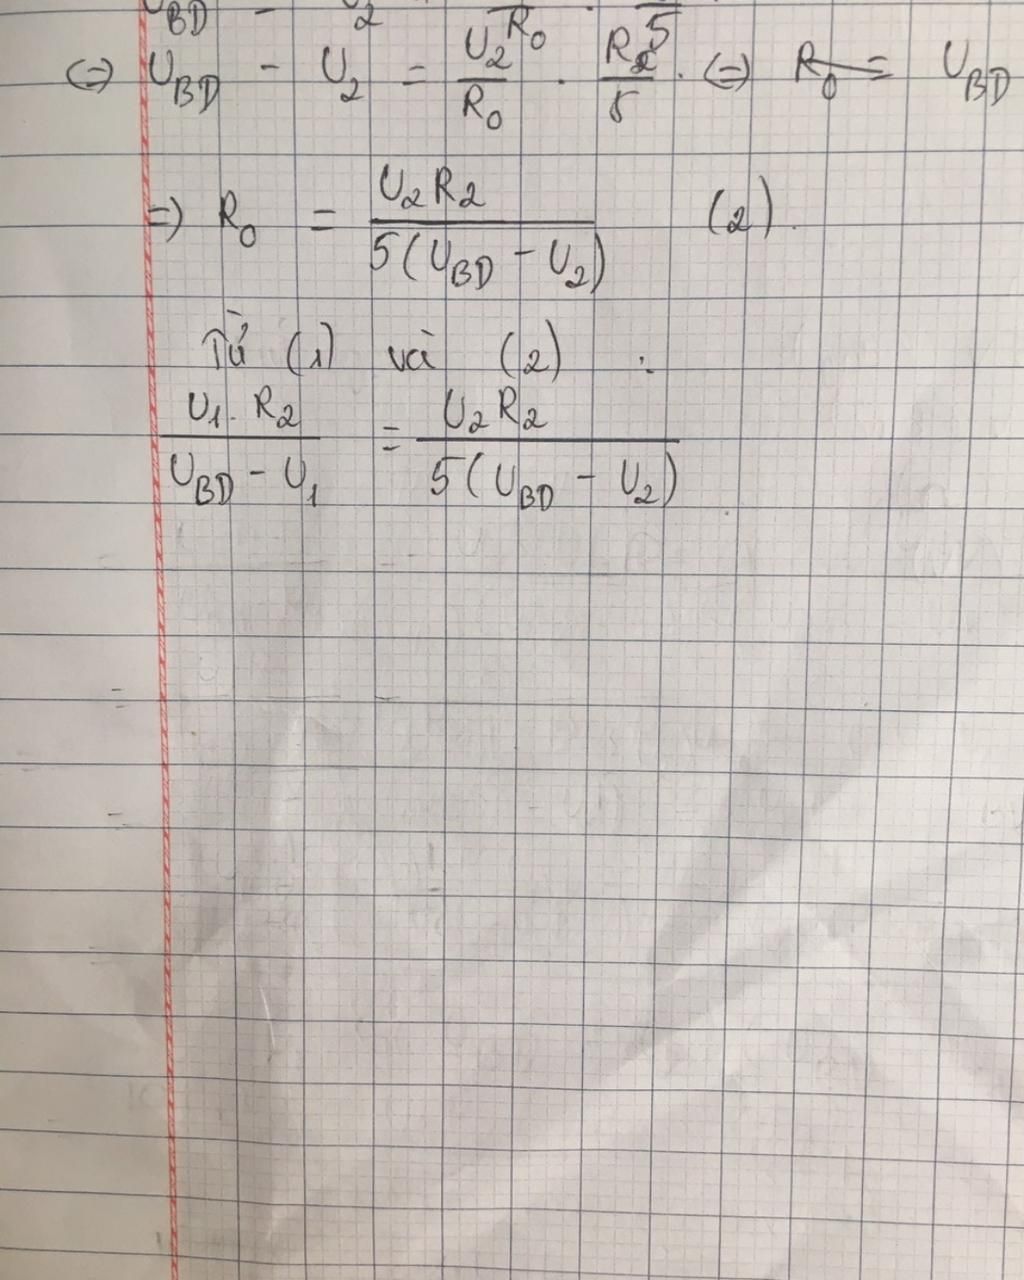 U_BD - U_2 = U_2/R_0 . R_2/5
⇔ U_BD - U_2 = U_2/R_0 . R_2/5 . ⇔ R_0 = U_BD
⇒ R_0 = U_2 R_2 / 5(U_BD - U_2) (2).
Từ (1) và (2) :
U_1 . R_2 / U_BD - U_1 = U_2 R_2 / 5(U_BD - U_2)